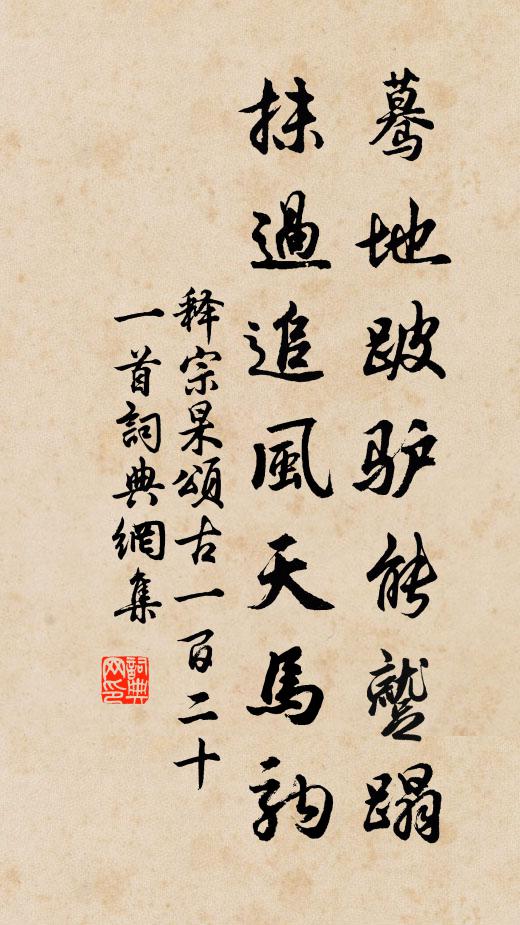 蓦地跛驴能蹔蹋
抹過追風天馬駒
释宗杲頌古一百二十
一首詞典網集
詞典网印